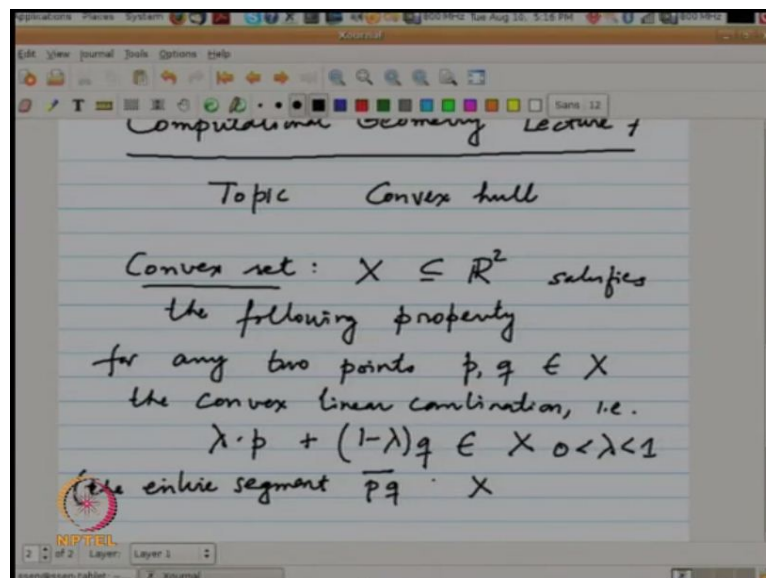 Applications Places System 800 MHz Tue Aug 10, 5:16 PM 800 MHz
Xournal
Edit View Journal Tools Options Help
Sans 12
Computational Geometry Lecture 7
Topic Convex hull
Convex set : X ⊆ ℝ² satisfies
the following property
for any two points p, q ∈ X
the convex linear combination, i.e.
λ·p + (1-λ)q ∈ X 0<λ<1
(the entire segment p̅q̅ · X
NPTEL
2 of 2 Layer: Layer 1
Xournal